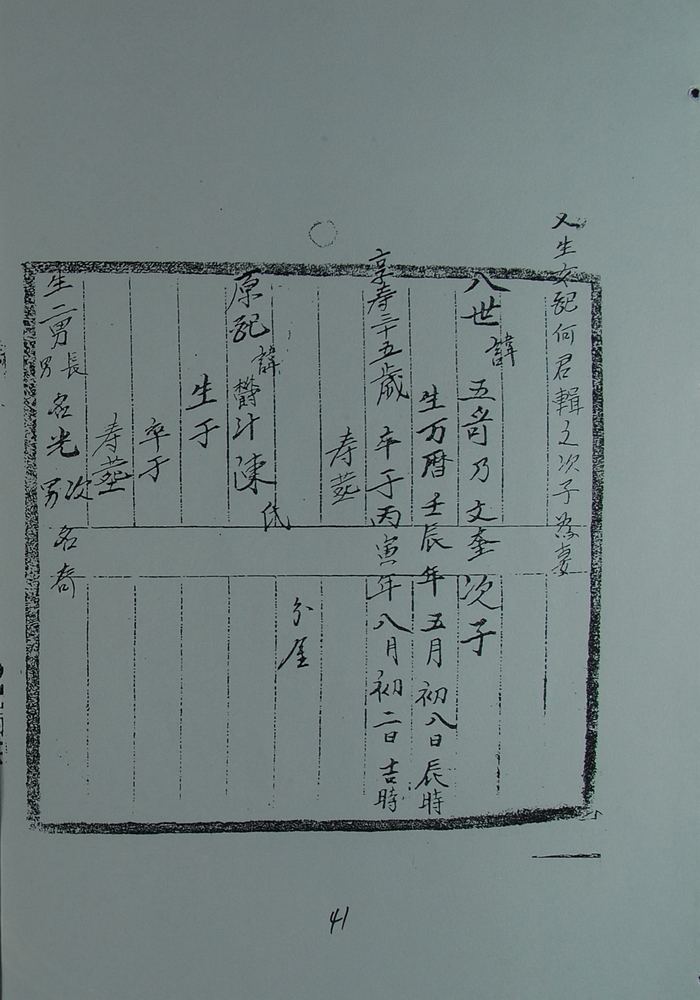 又生女配何君輯之次子為妻
八世諱五奇乃文奎次子
生万暦壬辰年五月初八日辰時
享寿三十五歳 卒于丙寅年八月初二日吉時
寿塟
分屋
原配諱 汁陳氏
生于
卒于
寿塟
生二男長男名光次男名奇
41